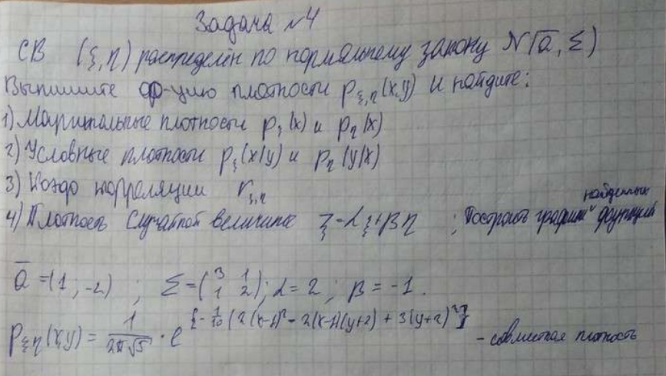 Задача №4
СВ (ξ, η) распределён по нормальному закону N(ā, Σ)
Выпишите ф-цию плотности p_{ξ,η}(x,y) и найдите:
1) Маргинальные плотности p_ξ(x) и p_η(x)
2) Условные плотности p_ξ(x|y) и p_η(y|x)
3) Коэф корреляции r_{ξ,η}
4) Плотность случайной величины ζ = αξ + βη ; Построить график найденных функций
ā = (1; -2) ; Σ = (3 1; 1 2); α = 2 ; β = -1.
p_{ξη}(x,y) = 1/(2π√5) · e^{-1/10 (2(x-1)² - 2(x-1)(y+2) + 3(y+2)²)} - совместная плотность